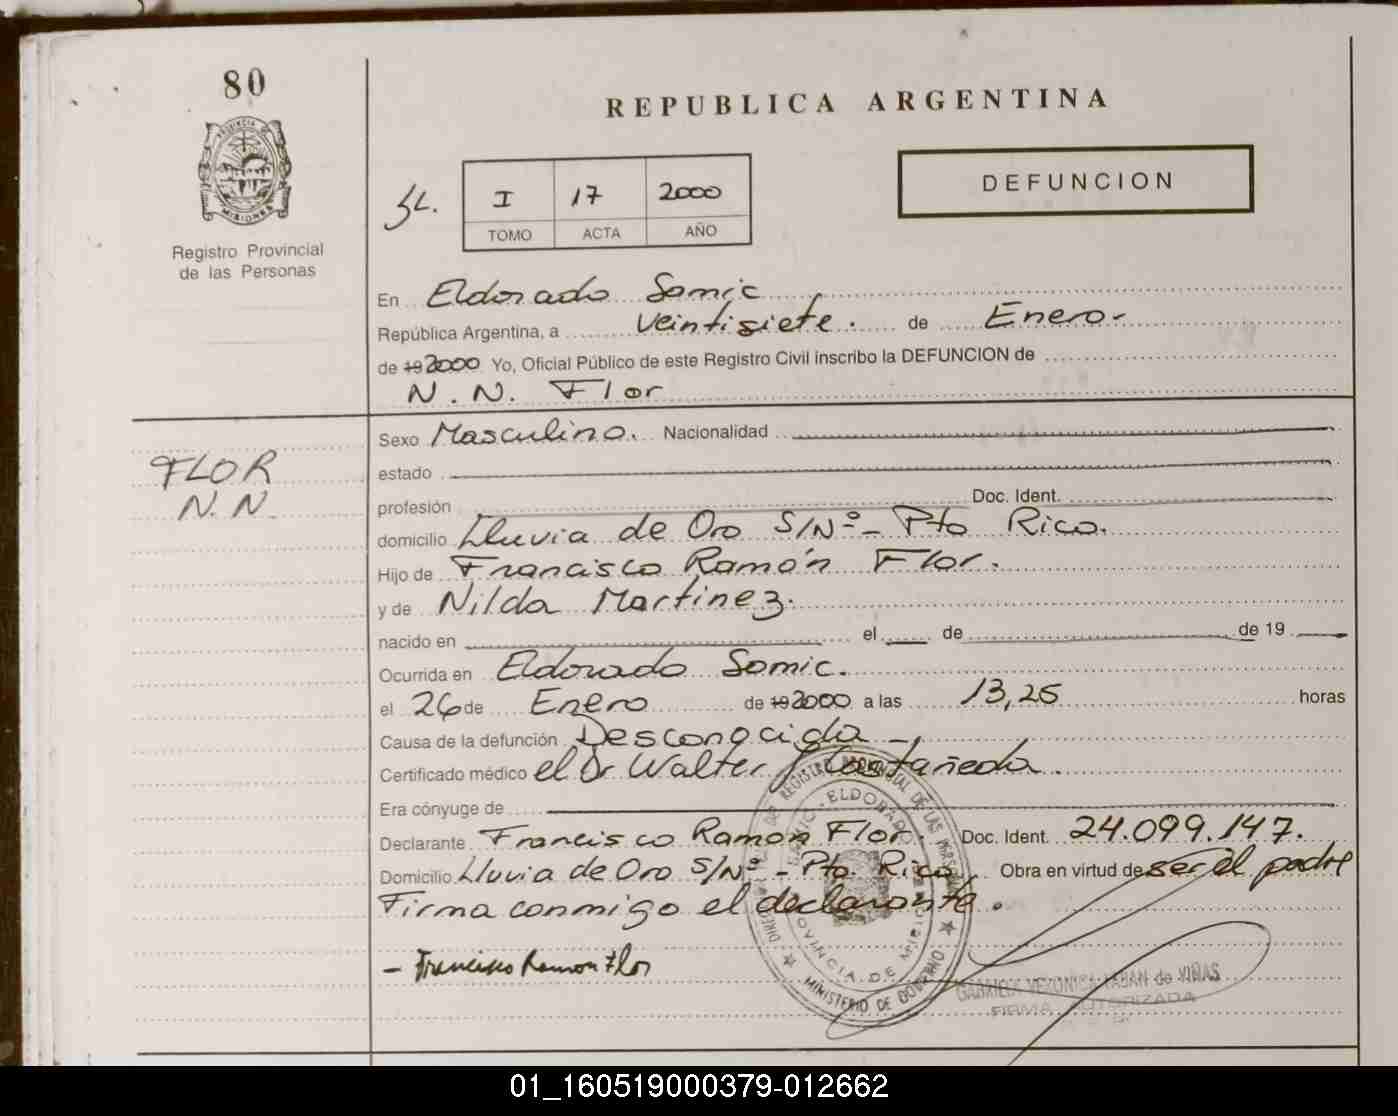 80
REPUBLICA ARGENTINA
PROVINCIA DE
MISIONES
Registro Provincial
de las Personas
I 17 2000
TOMO ACTA AÑO
DEFUNCION
En Eldorado Samic
República Argentina, a veintisiete. de Enero.-
de 19 2000 Yo, Oficial Público de este Registro Civil inscribo la DEFUNCION de
N. N. Flor
FLOR
N. N
Sexo Masculino. Nacionalidad
estado
profesión Doc. Ident.
domicilio Lluvia de Oro S/Nº- Pto Rico.
Hijo de Francisco Ramón Flor.
y de Nilda Martinez.
nacido en el de de 19
Ocurrida en Eldorado Samic.
el 26 de Enero de 19 2000 a las 13,25 horas
Causa de la defunción Desconocida -
Certificado médico el Dr Walter J Castañeda
Era cónyuge de
Declarante Francisco Ramon Flor. Doc. Ident. 24.099.147.
Domicilio Lluvia de Oro S/Nº - Pto Rico Obra en virtud de ser el padre
Firma conmigo el declarante.
- Francisco Ramon Flor
REGISTRO PROVINCIAL DE LAS PERSONAS
ELDORADO
PROVINCIA DE MISIONES
MINISTERIO DE GOBIERNO
VERONICA de VIÑAS
FIRMA AUTORIZADA
01_160519000379-012662